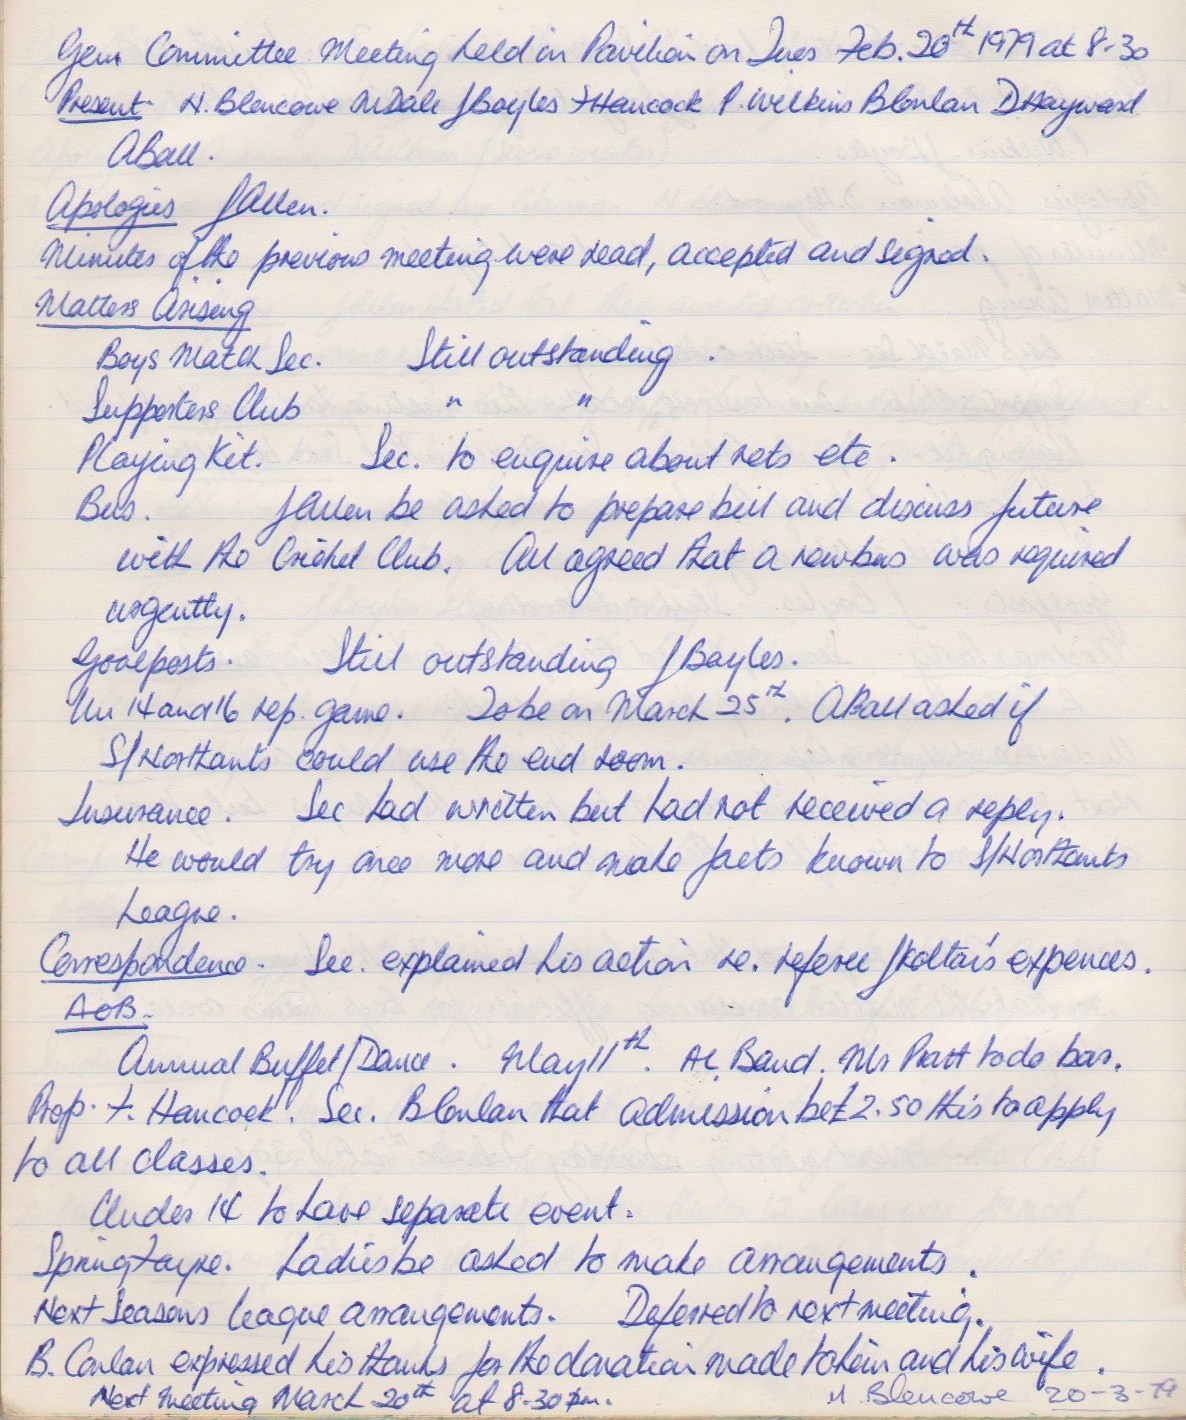 Gen Committee Meeting held in Pavilion on Tues Feb. 20th 1979 at 8-30
Present- N. Blencowe M Dale J Bayles F Hancock P. Wilkins B Conlan D Hayward
A Ball.
Apologies J Allen.
Minutes of the previous meeting were read, accepted and signed.
Matters Arising
Boys Match Sec. Still outstanding.
Supporters Club " "
Playing Kit. Sec. to enquire about nets etc.
Bus. J Allen be asked to prepare bill and discuss future
with the Cricket Club. All agreed that a new bus was required
urgently.
Goalposts. Still outstanding J Bayles.
Un 14 and 16 rep. game. To be on March 25th. A Ball asked if
S/Northants could use the end room.
Insurance. Sec had written but had not received a reply.
He would try once more and make facts known to S/Northants
League.
Correspondence. Sec. explained his action re. referee J Koltai's expences.
AOB.
Annual Buffet/Dance. May 11th. AL Band. Mr Pratt to do bar.
Prop. F. Hancock. Sec. B Conlan that admission be £2.50 this to apply
to all classes.
Under 14 to have separate event.
Spring Fayre. Ladies be asked to make arrangements.
Next Seasons League arrangements. Deferred to next meeting.
B. Conlan expressed his thanks for the donation made to him and his wife.
Next meeting March 20th at 8-30pm. N. Blencowe 20-3-79